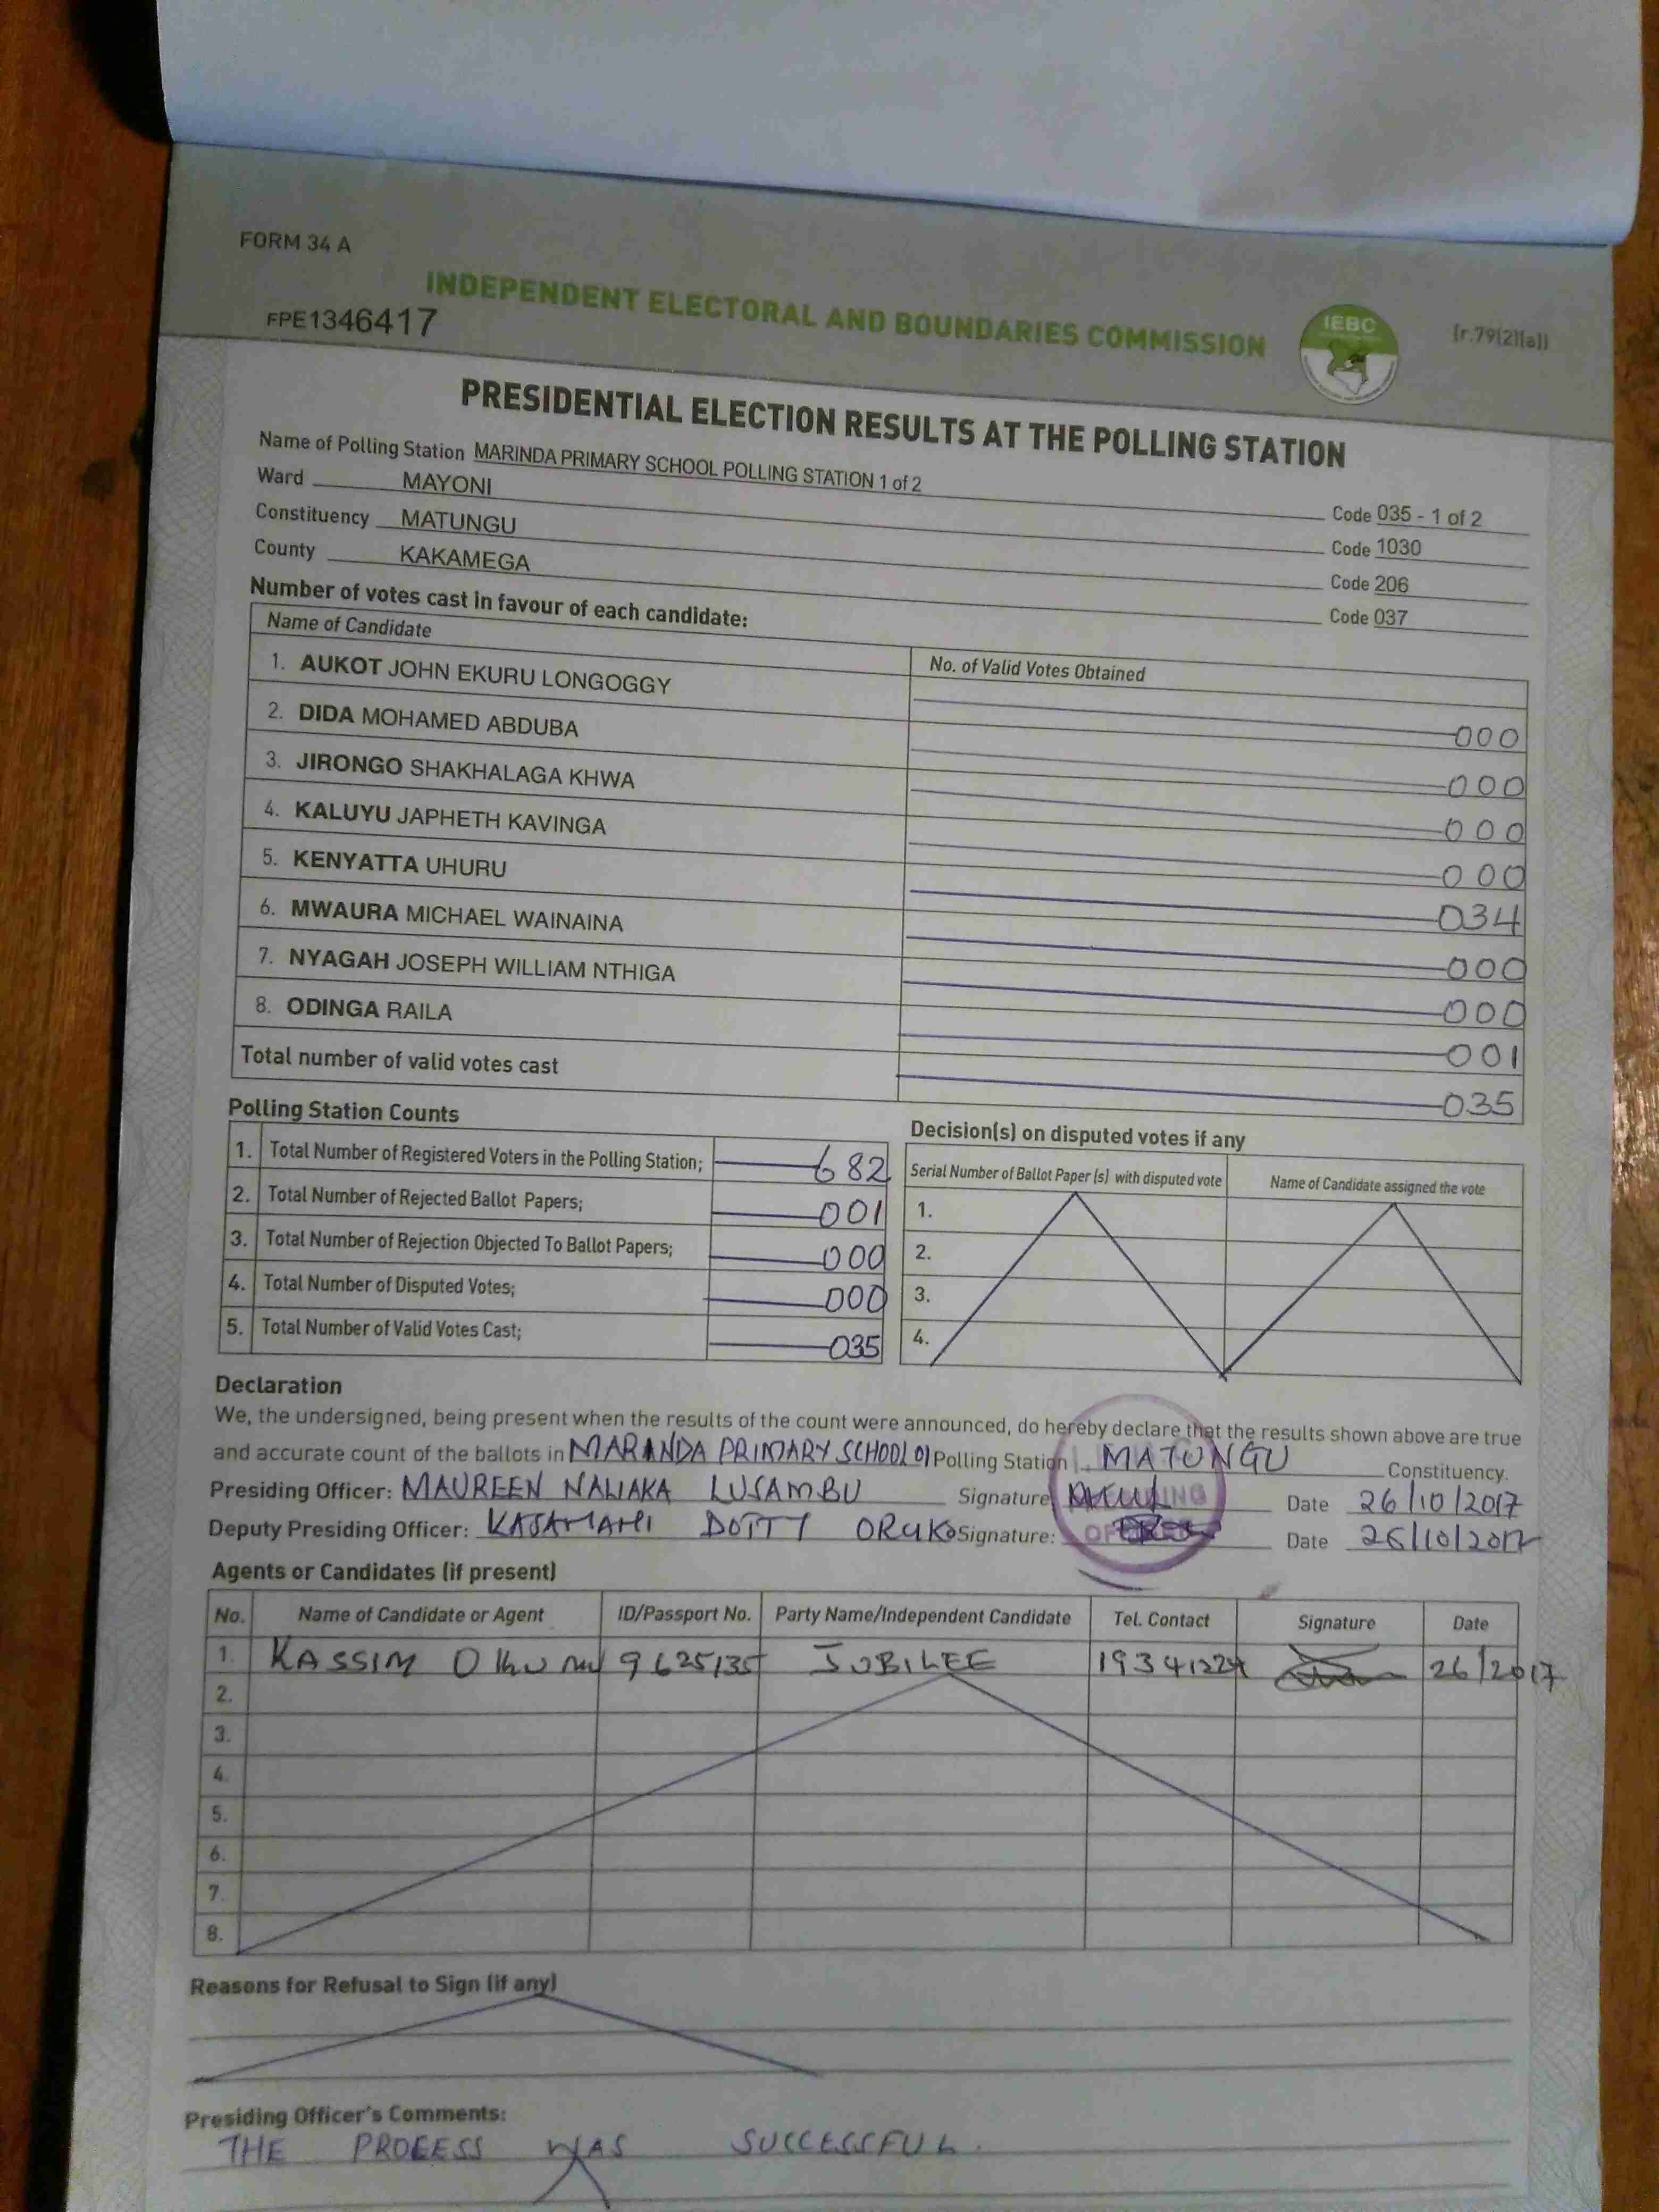 FORM 34 A
INDEPENDENT ELECTORAL AND BOUNDARIES COMMISSION
IEBC
(r.79(2)(a))
FPE1346417
PRESIDENTIAL ELECTION RESULTS AT THE POLLING STATION
Name of Polling Station MARINDA PRIMARY SCHOOL POLLING STATION 1 of 2 Code 035 - 1 of 2
Ward MAYONI Code 1030
Constituency MATUNGU Code 206
County KAKAMEGA Code 037
Number of votes cast in favour of each candidate:
Name of Candidate No. of Valid Votes Obtained
1. AUKOT JOHN EKURU LONGOGGY 000
2. DIDA MOHAMED ABDUBA 000
3. JIRONGO SHAKHALAGA KHWA 000
4. KALUYU JAPHETH KAVINGA 000
5. KENYATTA UHURU 034
6. MWAURA MICHAEL WAINAINA 000
7. NYAGAH JOSEPH WILLIAM NTHIGA 000
8. ODINGA RAILA 001
Total number of valid votes cast 035
Polling Station Counts
1. Total Number of Registered Voters in the Polling Station; 682
2. Total Number of Rejected Ballot Papers; 001
3. Total Number of Rejection Objected To Ballot Papers; 000
4. Total Number of Disputed Votes; 000
5. Total Number of Valid Votes Cast; 035
Decision(s) on disputed votes if any
Serial Number of Ballot Paper (s) with disputed vote Name of Candidate assigned the vote
1.
2.
3.
4.
Declaration
We, the undersigned, being present when the results of the count were announced, do hereby declare that the results shown above are true
and accurate count of the ballots in MARANDA PRIMARY SCHOOL 01 Polling Station MATUNGU Constituency.
Presiding Officer: MAUREEN NALIAKA LUSAMBU Signature Date 26/10/2017
Deputy Presiding Officer: KASAMANI DOTTY ORUKO Signature: Date 26/10/2017
Agents or Candidates (if present)
No. Name of Candidate or Agent ID/Passport No. Party Name/Independent Candidate Tel. Contact Signature Date
1. KASSIM 9625135 JUBILEE 19341224 26/2017
2.
3.
4.
5.
6.
7.
8.
Reasons for Refusal to Sign (if any)
Presiding Officer's Comments:
THE PROCESS WAS SUCCESSFUL.